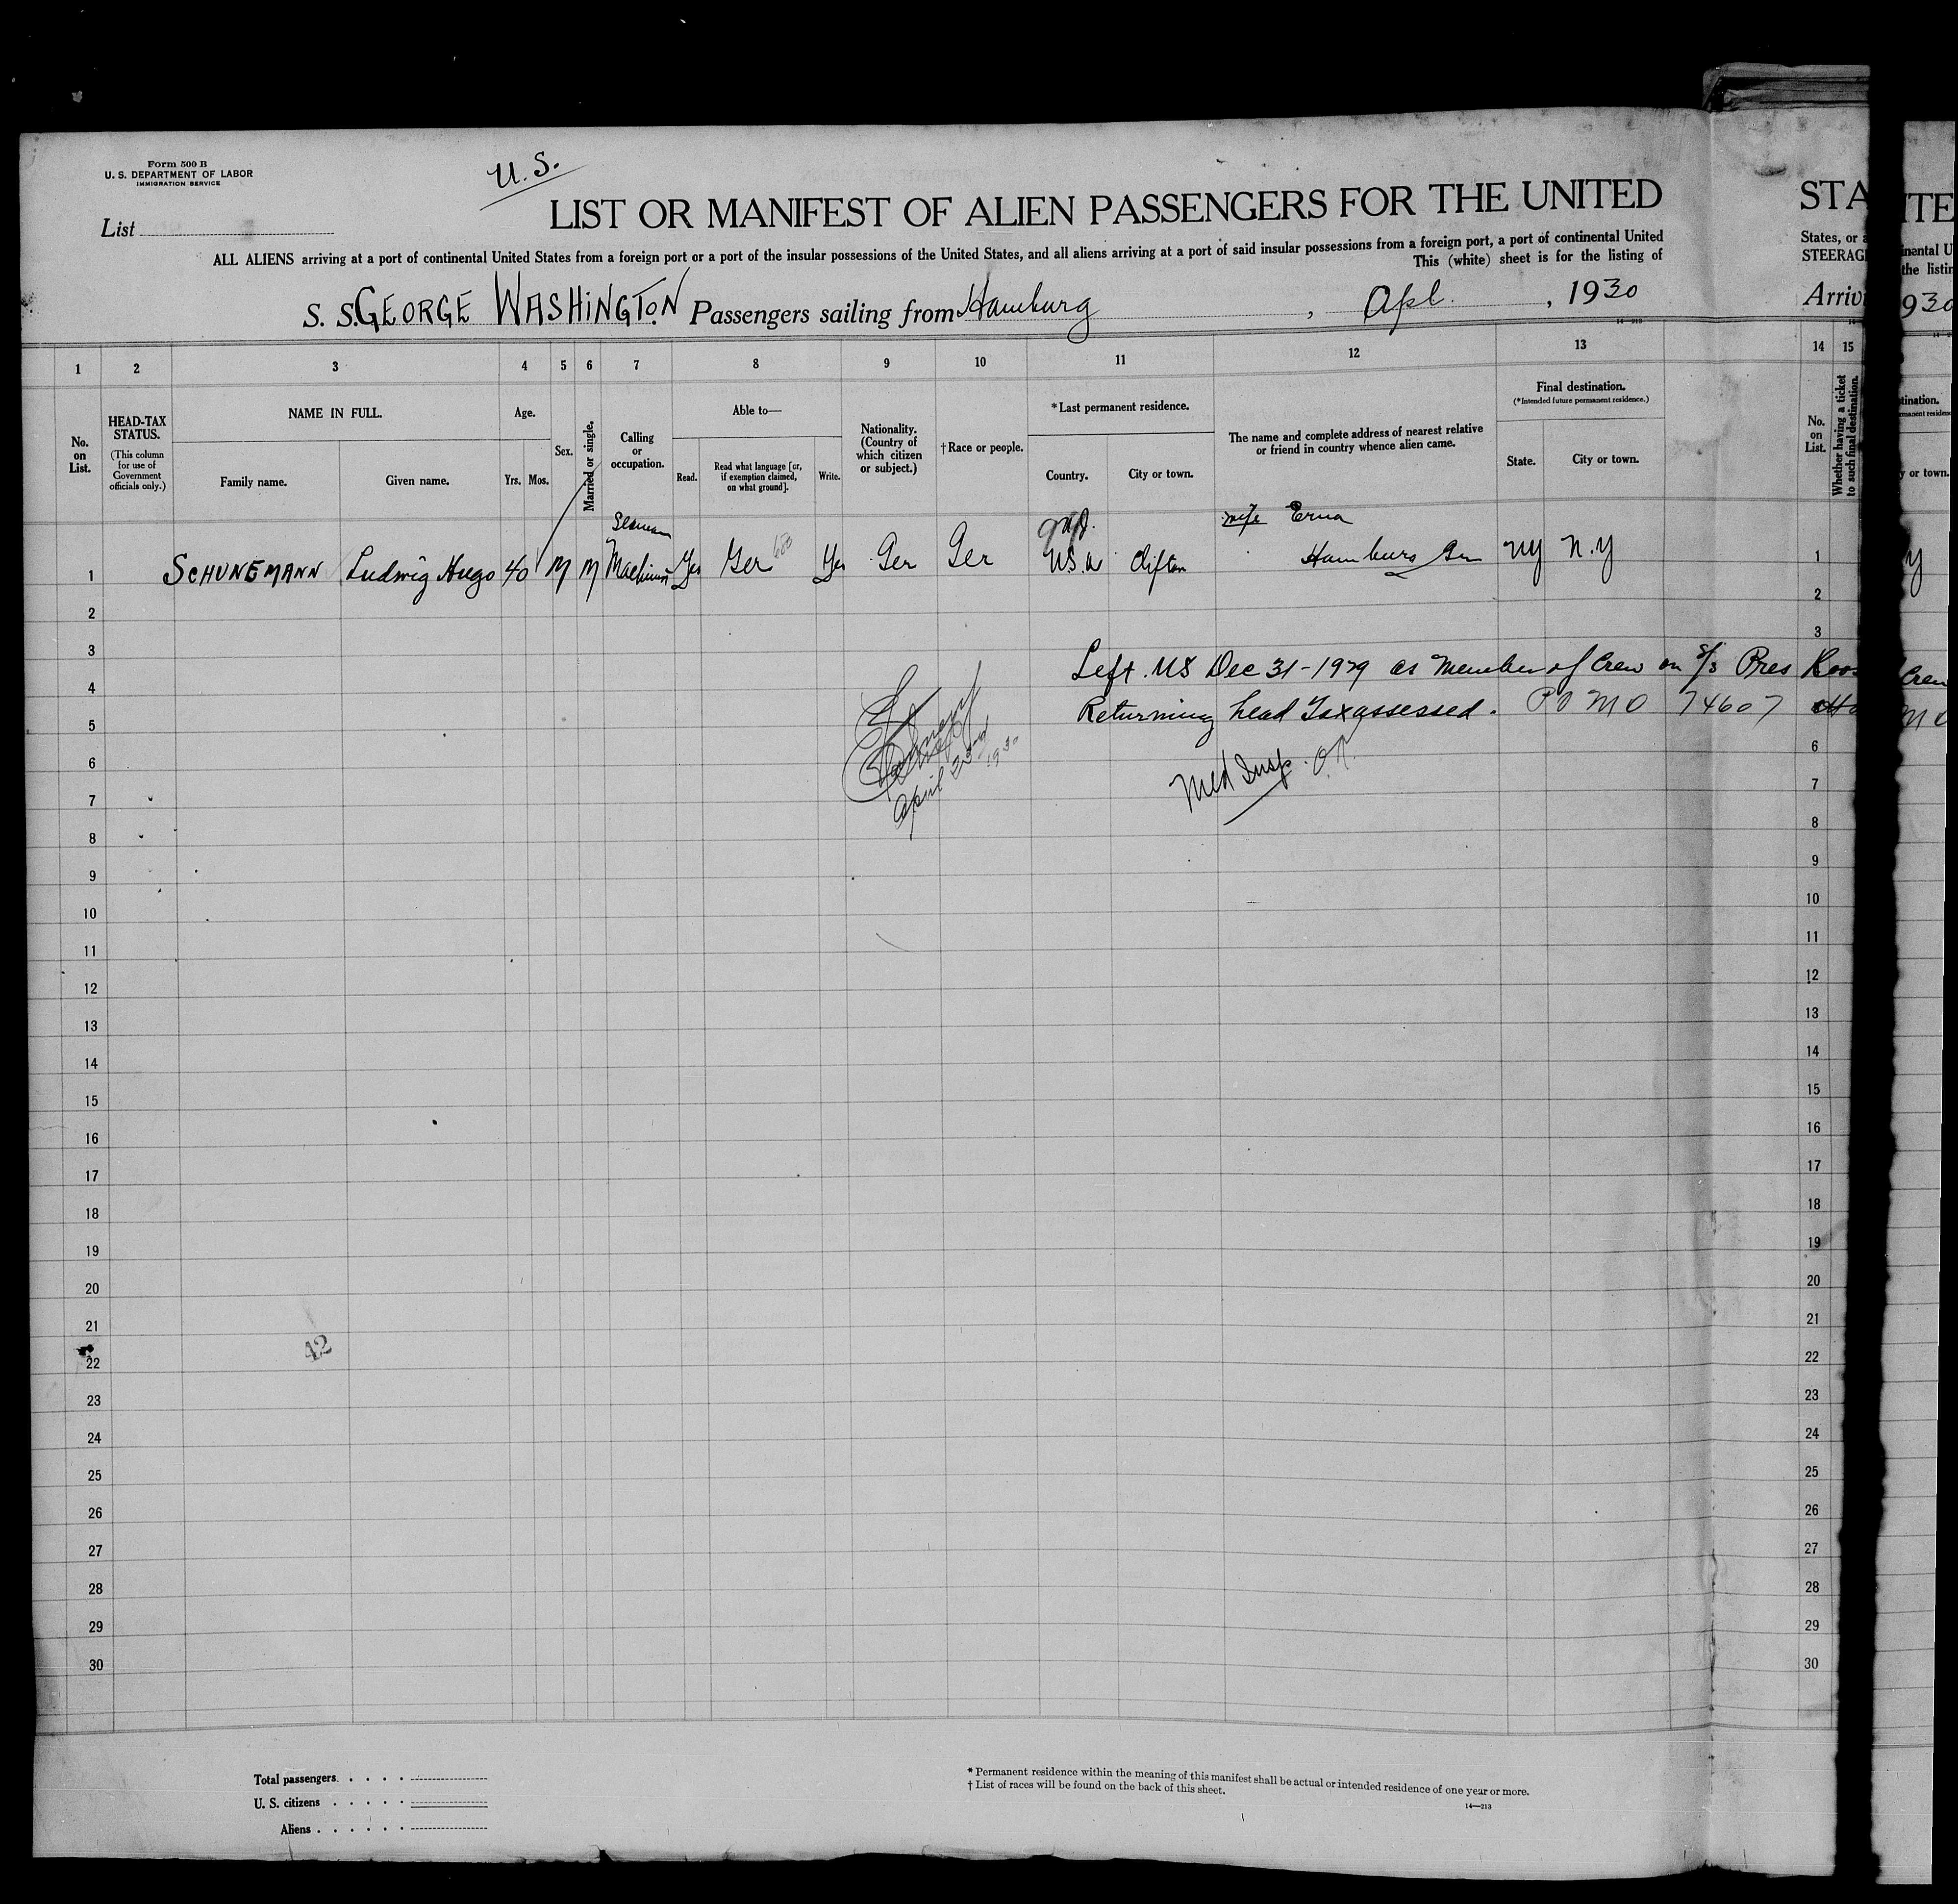 Form 500 B
U. S. DEPARTMENT OF LABOR
IMMIGRATION SERVICE
U. S.
List
LIST OR MANIFEST OF ALIEN PASSENGERS FOR THE UNITED
STA
ITE
ALL ALIENS arriving at a port of continental United States from a foreign port or a port of the insular possessions of the United States, and all aliens arriving at a port of said insular possessions from a foreign port, a port of continental United
States, or a
inental U
This (white) sheet is for the listing of
STEERAG
the listin
S. S. GEORGE WASHINGTON Passengers sailing from Hamburg, Apl. , 1930
Arrivi
930
1 2 3 4 5 6 7 8 9 10 11 12 13 14 15
No. on List.
HEAD-TAX STATUS.
(This column for use of Government officials only.)
NAME IN FULL.
Family name.
Given name.
Age.
Yrs. Mos.
Sex.
Married or single.
Calling or occupation.
Able to—
Read.
Read what language [or, if exemption claimed, on what ground].
Write.
Nationality. (Country of which citizen or subject.)
†Race or people.
*Last permanent residence.
Country.
City or town.
The name and complete address of nearest relative or friend in country whence alien came.
Final destination.
(*Intended future permanent residence.)
State.
City or town.
No. on List.
Whether having a ticket to such final destination.
tination.
rmanent residence
y or town.
Seaman
wife Erna
1 SCHUNEMANN Ludwig Hugo 40 M M Machinist Yes Ger Yes Ger Ger U.S.A Clifton Hamburg Ger NY N.Y 1
y
2 2
3 3
Left US Dec 31-1929 as Member of Crew on S/S Pres Roos
Crew
4
Returning head Tax assessed. P O M O 74607
M O
5
April 23rd 1930
6 6
Med Insp. O.K.
7 7
8 8
9 9
10 10
11 11
12 12
13 13
14 14
15 15
16 16
17 17
18 18
19 19
20 20
21 21
42
22 22
23 23
24 24
25 25
26 26
27 27
28 28
29 29
30 30
Total passengers. . . . .
U. S. citizens . . . . .
Aliens . . . . . .
* Permanent residence within the meaning of this manifest shall be actual or intended residence of one year or more.
† List of races will be found on the back of this sheet.
14—213